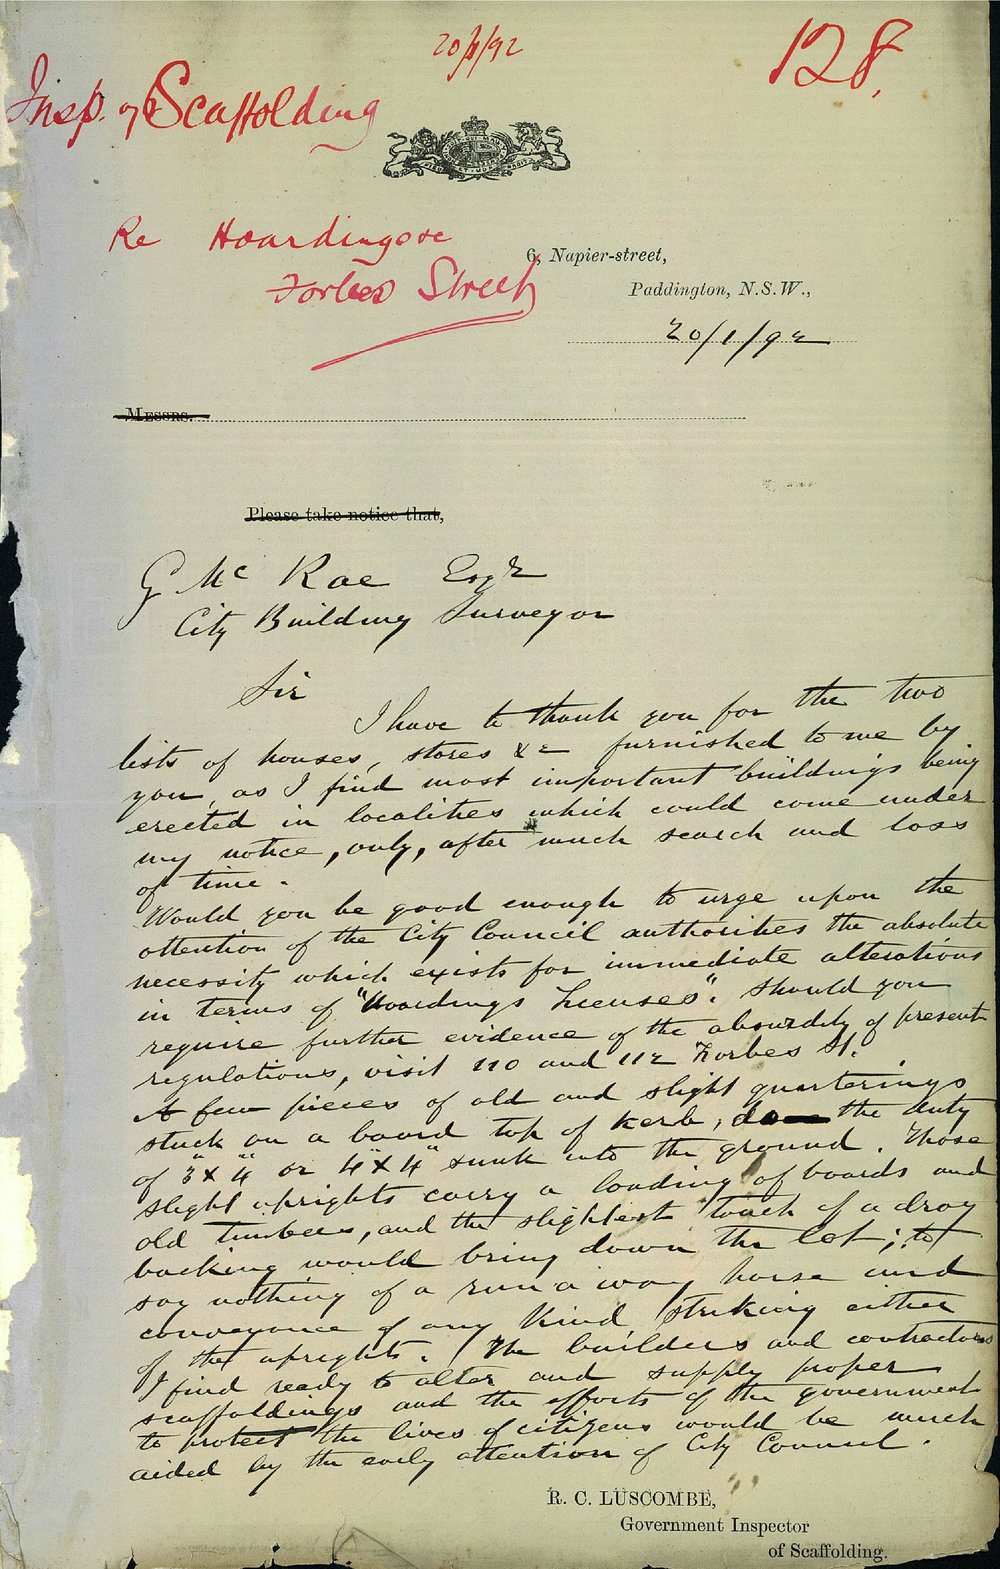 20/1/92
128.
Insp. of Scaffolding
Re Hoardings or
Forbes Street
6, Napier-street,
Paddington, N.S.W.,
20/1/92
Messrs.
Please take notice that,
G Mc Rae Esqr
City Building Surveyor
Sir
I have to thank you for the two
lists of houses, stores &c furnished to me by
you, as I find most important buildings being
erected in localities which could come under
my notice, only, after much search and loss
of time.
Would you be good enough to urge upon the
attention of the City Council authorities the absolute
necessity which exists for immediate alterations
in terms of "Hoardings Licenses". Should you
require further evidence of the absurdity of present
regulations, visit 110 and 112 Forbes St.
A few pieces of old and slight quarterings
stuck on a board top of kerb, do the duty
of 3" x 4" or 4" x 4" sunk into the ground. Those
slight uprights carry a loading of boards and
old timbers, and the slightest touch of a dray
backing would bring down the lot; to
say nothing of a run a way horse and
conveyance of any kind striking either
of the uprights. The builders and contractors
I find ready to alter and supply proper
scaffoldings and the efforts of the government
to protect the lives of citizens would be much
aided by the early attention of City Council.
R. C. LUSCOMBE,
Government Inspector
of Scaffolding.